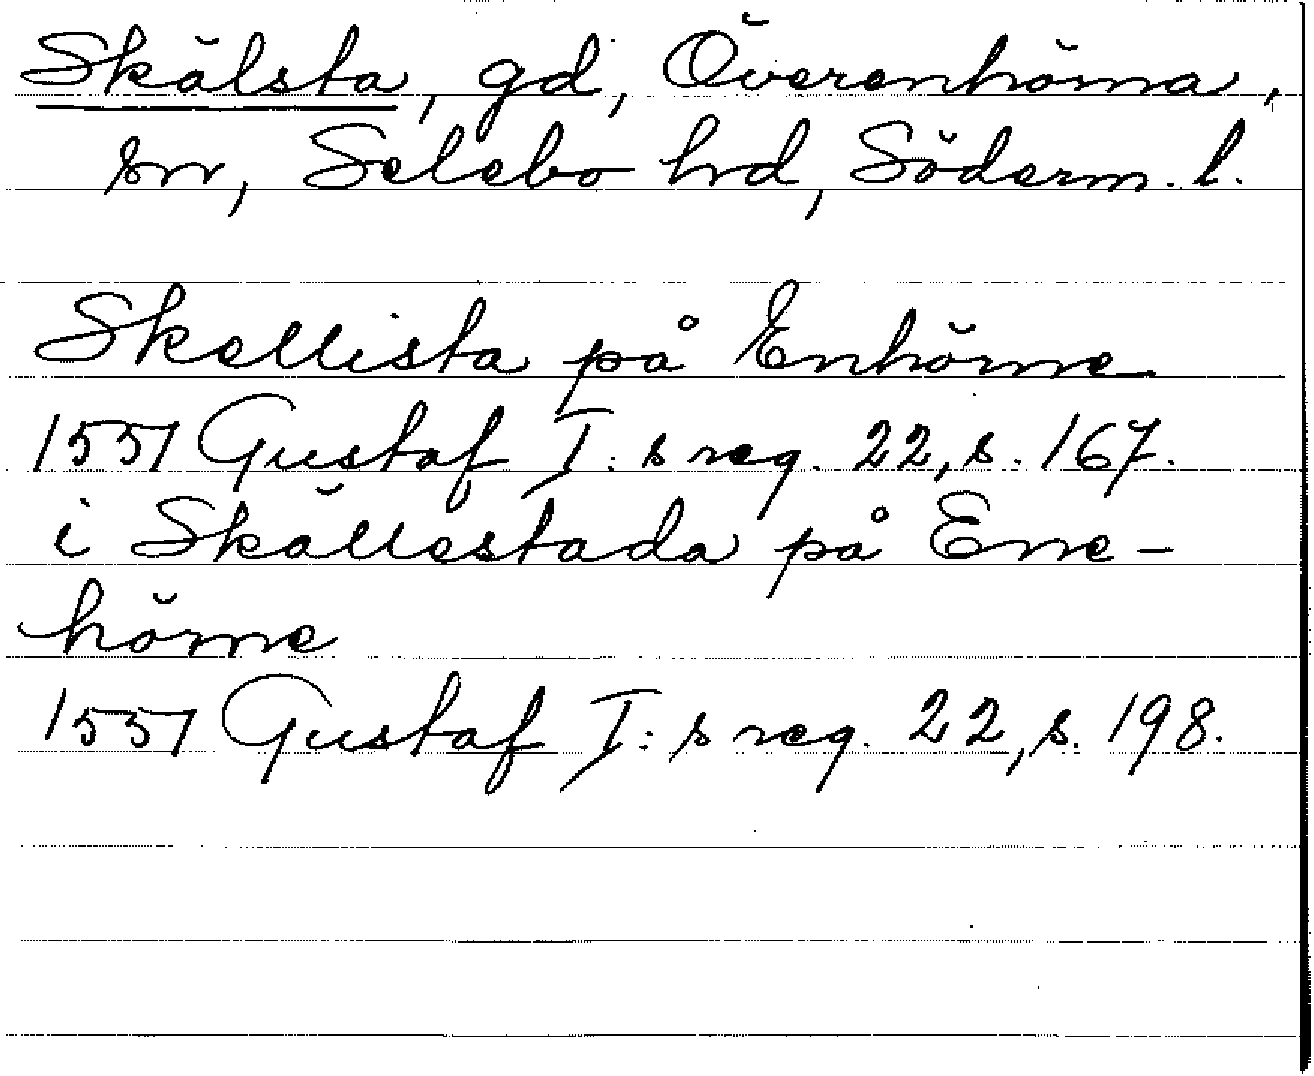 Skälsta, gd, Överenhörna,
sn, Selebo hd, Söderm. l.
Skellista på Enhörne
1551 Gustaf I:s reg. 22, s. 167.
i Skällestada på Ene-
hörne
1551 Gustaf I:s reg. 22, s. 198.